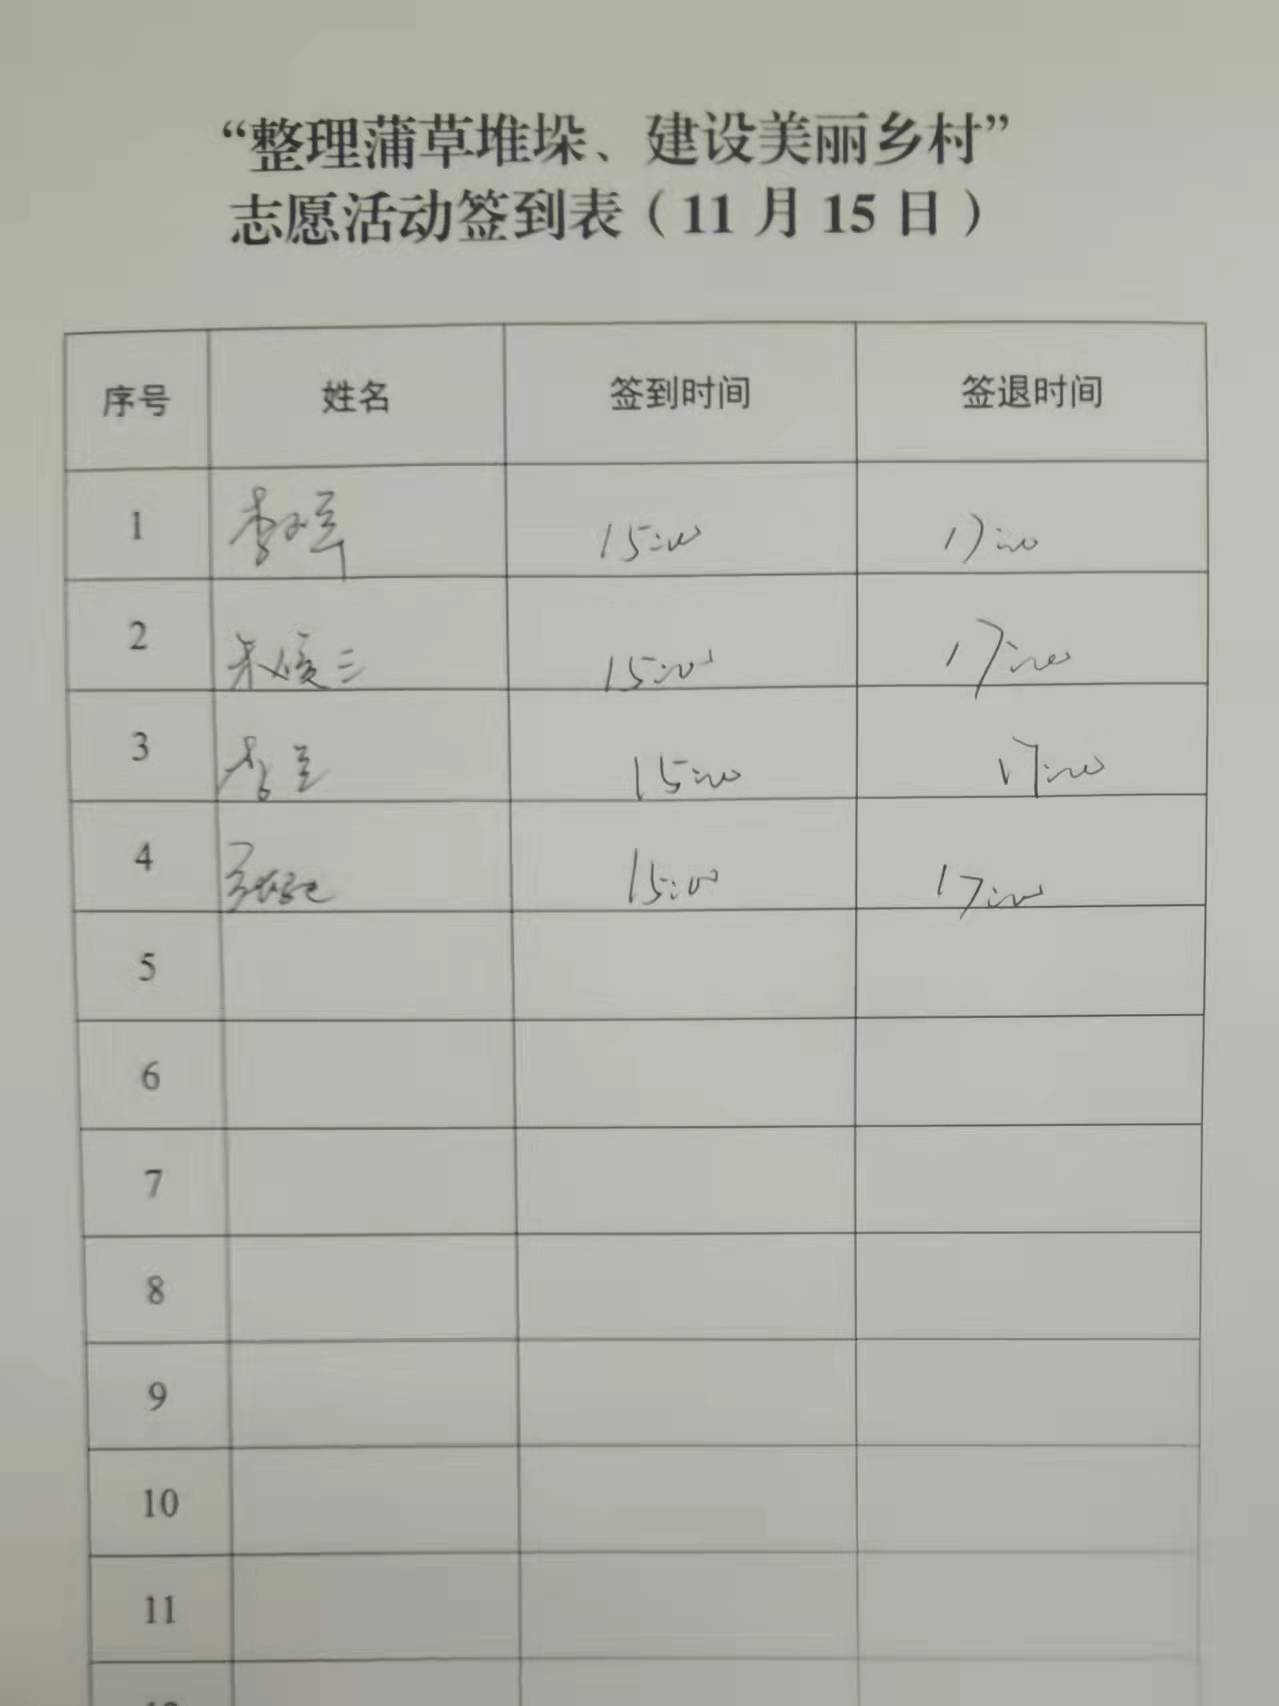 “整理蒲草堆垛、建设美丽乡村”
志愿活动签到表（11月15日）
序号 姓名 签到时间 签退时间
1 15:00 17:00
2 15:00 17:00
3 15:00 17:00
4 15:00 17:00
5
6
7
8
9
10
11